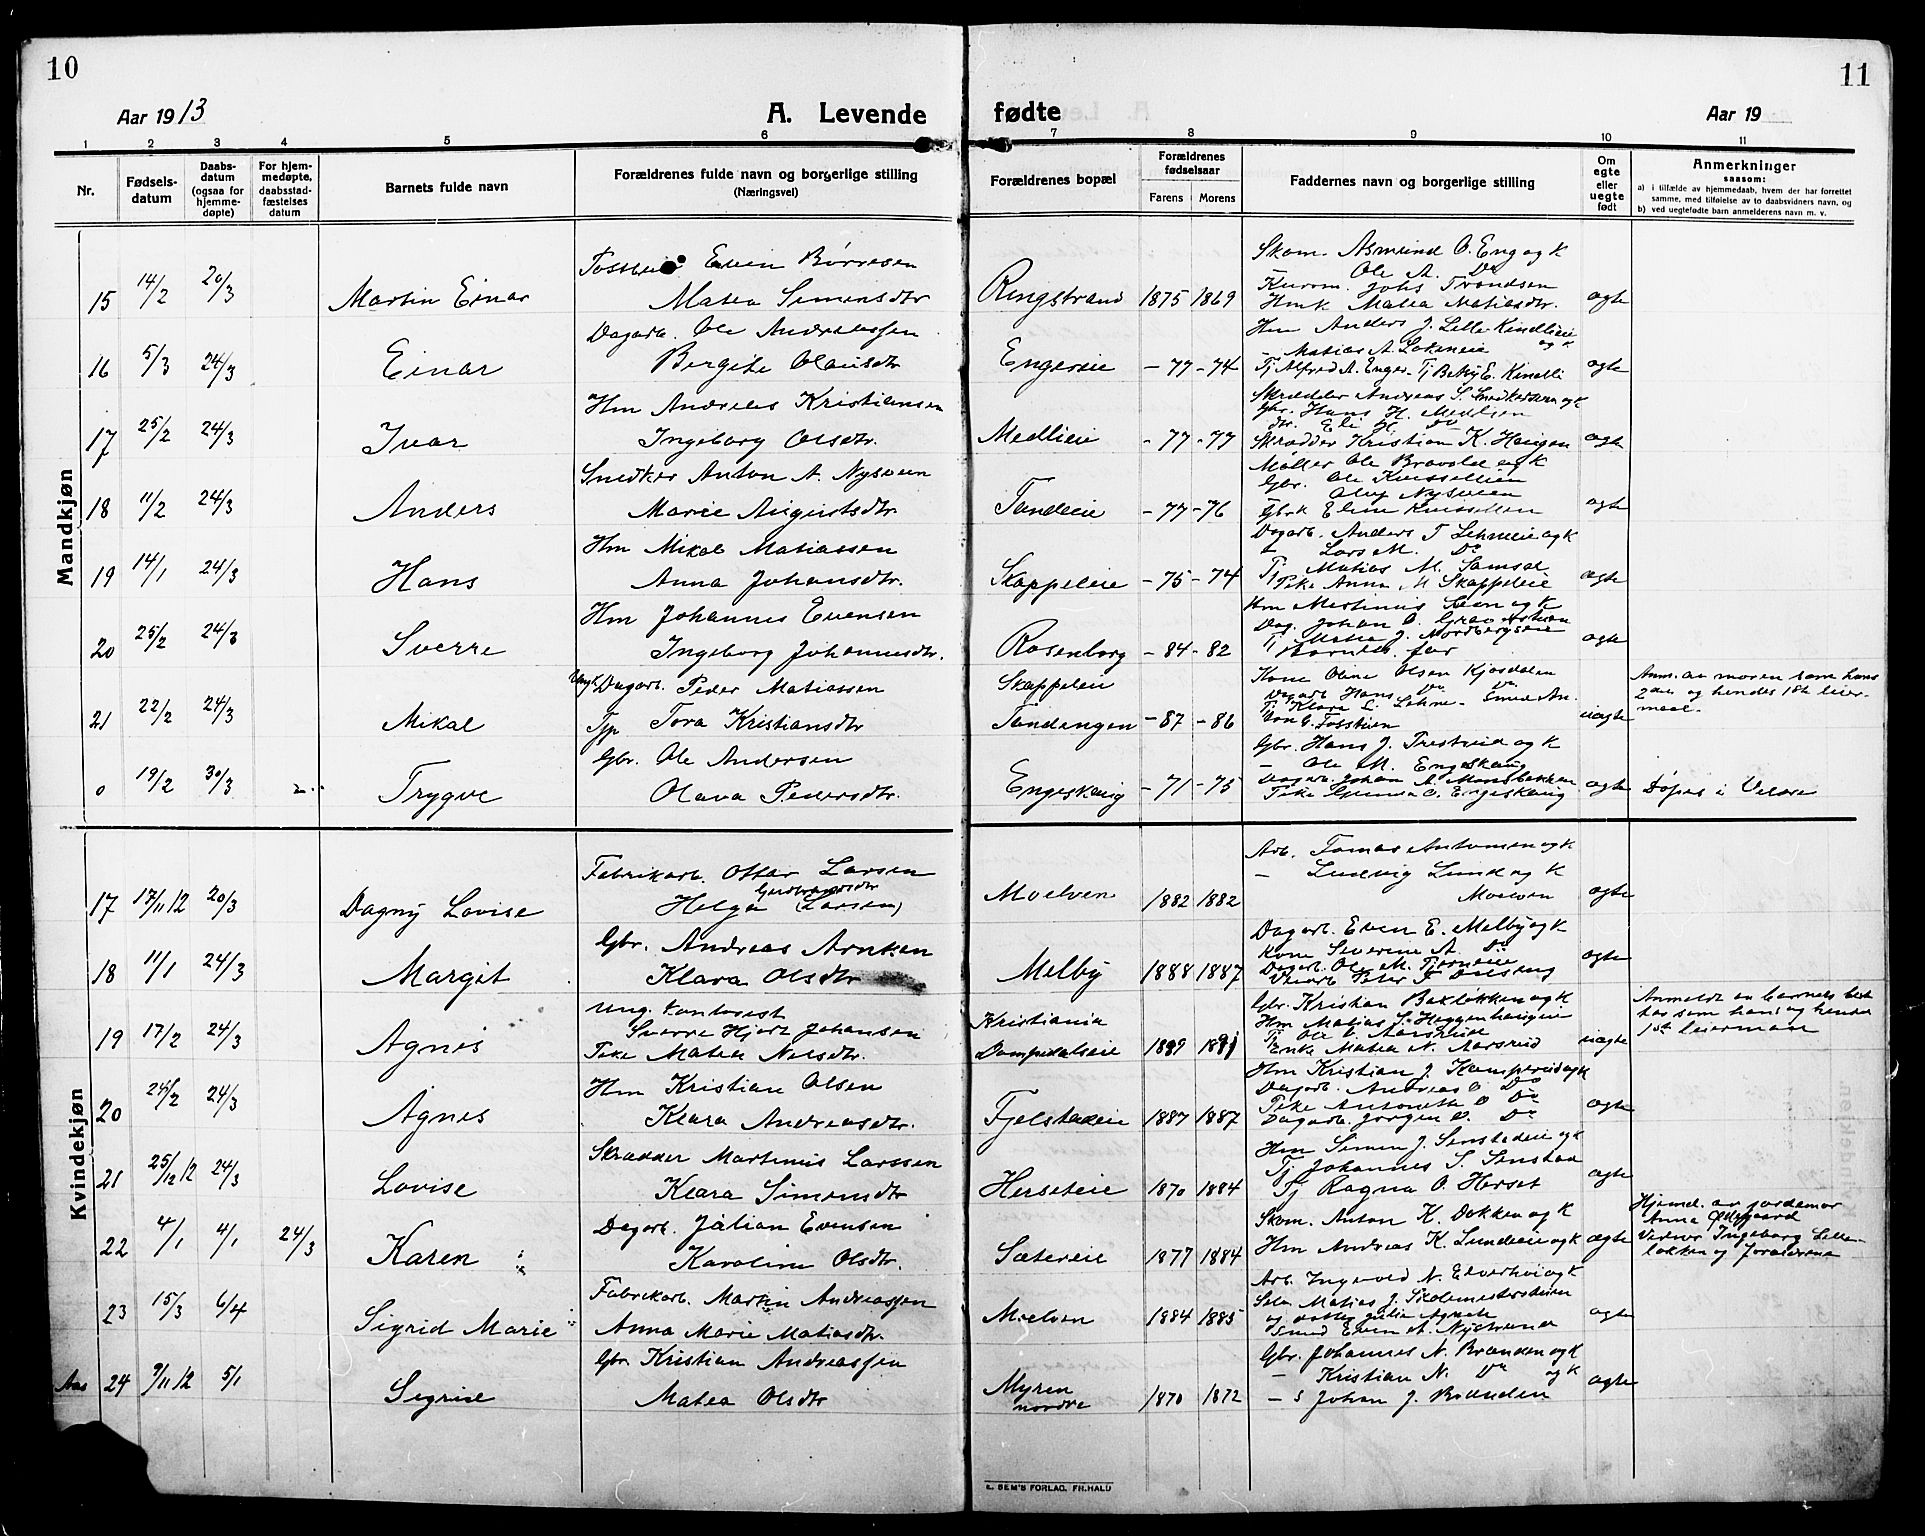 10
11
Aar 1913
A. Levende fødte
Aar 19
1 2 3 4 5 6 7 8 9 10 11
Nr.
Fødsels-
datum
Daabs-
datum
(ogsaa for
hjemme-
døpte)
For hjem-
medøpte,
daabsstad-
fæstelses
datum
Barnets fulde navn
Forældrenes fulde navn og borgerlige stilling
(Næringsvei)
Forældrenes bopæl
Forældrenes
fødselsaar
Farens Morens
Faddernes navn og borgerlige stilling
Om
egte
eller
uegte
født
Anmerkninger
saasom:
a) i tilfælde av hjemmedaab, hvem der har forrettet
samme, med tilføielse av to daabsvidners navn, og
b) ved uegtefødte barn anmelderens navn m. v.
Mandkjøn
15 14/2 20/3 Martin Einar
Even Børresen
Matea Simensdtr
Ringstrand 1875 1869
Skom. Asmund O. Eng og k
Ole A. Do
Johs Trondsen
Hmk Matea Matiasdtr.
egte
16 5/3 24/3 Einar
Dagarb. Ole Andreassen
Bergite Olausdtr
Engereie -77 -74
Hm Anders J. Lille Kindlieie og k
- Matias A. Løkeneie
Tj Alfred A. Enger - Tj Betsy E. Kindli
egte
17 25/2 24/3 Ivar
Hm Andreas Kristiansen
Ingeborg Olsdtr.
Medlieie -77 -77
Skrædder Andreas S. Snedkersveen og k
Gbr. Hans H. Medlien
dtr. Eli H. Do
Skrædder Kristian K. Haugen
egte
18 11/2 24/3 Anders
Snedker Anton A. Nysveen
Marie Augustsdtr
Tandeie -77 -76
Møller Ole Bravold og k
Gbr. Ole Kvissellien
Oluf Nysveen
Gbrk Eline Kvissellien
egte
19 14/1 24/3 Hans
Hm Mikal Matiassen
Anna Johansdtr.
Skappeleie -75 -74
Dagarb. Anders T Lehneie og k
- Lars M. Do
Tj Matias M. Samsal
Pike Anna M Skappeleie
egte
20 25/2 24/3 Sverre
Hm Johannes Evensen
Ingeborg Johannesdtr.
Rosenborg -84 -82
Hm Martinius Sveen og k
Dag. Johan O.
Tj Matea J. Nordbergseie
Barnets far
egte
21 22/2 24/3 Mikal
Ungk. Dagarb. Peder Matiassen
Tjp Tora Kristiansdtr
Skappeleie
Tandengen -87 -86
Kone Oline Olsen Kjosdalen
Dagarb Hans Do Do
Tj Klara L. Lehne - Smed An-
ton G. Fosstuen
uegte
Anm. av moren som hans
2det og hendes 1ste leier-
maal.
0 19/2 30/3 Trygve
Gbr. Ole Andersen
Olava Pedersdtr.
Engeskaug -71 -75
Gbr. Hans J. Trestveid og k
- Ole M. Engeskaug
Dagarb. Johan A. Monsbakken
Pike Gunna O. Engeskaug
egte
Døpes i Veldre
Kvindekjøn
17 17/11 12 20/3 Dagny Lovise
Fabrikarb. Ottar Larsen
Gudbrandsdtr
Helga (Larsen)
Moelven 1882 1882
Arb. Tomas Antonsen og k
- Ludvig Lund og k
Moelven
egte
18 11/1 24/3 Margit
Gbr. Andreas Arnesen
Klara Olsdtr
Melby 1888 1887
Dagarb. Even E. Melby og k
Kone Severine A. Do
Dagarb. Ole M. Tjerneie
egte
19 17/2 24/3 Agnes
Ung. Kontorist
Sverre Hjort Johansen
Pike Matea Nilsdtr.
Kristiania
Dompedalseie 1889 1891
Gbr. Kristian Bakløkken og k
Hm Matias S. Heggenhaugeie
Tj Ole N. Aarsveid
Enke Matea N. Aarsveid
uegte
Anmeldt av barnets bed-
1ste leiermaal
20 24/2 24/3 Agnes
Hm Kristian Olsen
Klara Andreasdtr.
Fjelstadeie 1887 1887
Hm Kristian J. Kampeseid og k
Dagarb. Andreas O Do
Pike Antonette O Do
Dagarb. Jørgen O. Do
egte
21 25/12 12 24/3 Lovise
Skrædder Martinius Larssen
Klara Simensdtr
Herseteie 1870 1884
Hm Simen J. Senstadeie og k
Tj Johannes S. Senstad
Tj Ragna O. Herset
egte
22 4/1 4/1 24/3 Karen
Dagarb. Julian Evensen
Karoline Olsdtr.
Sætereie 1877 1884
Skom. Anton K. Dokken og k
Hm Andreas K. Lundeie og k
egte
Hjemd. av jordemor
Anna Ødegaard
Vidner Ingeborg Lille-
løkken og forældrene
23 15/3 6/4 Sigrid Marie
Fabrikarb. Martin Andreassen
Anna Marie Matiasdtr.
Moelven 1884 1885
Arb. Ingevald N. Elverhøi og k
Matias J. Skolemesterstuen
og datter Julia Agnete
Smed Even A. Nystrand
egte
Aas 24 9/11 12 5/1 Sigrid
Gbr Kristian Andreassen
Matea Olsdtr
Myren
nordre 1870 1872
Gbr. Johannes N. Brænden og k
- Kristian N. Do og k
- S Johan J. Brænden
egte
E. SEM'S FORLAG, FR.HALD